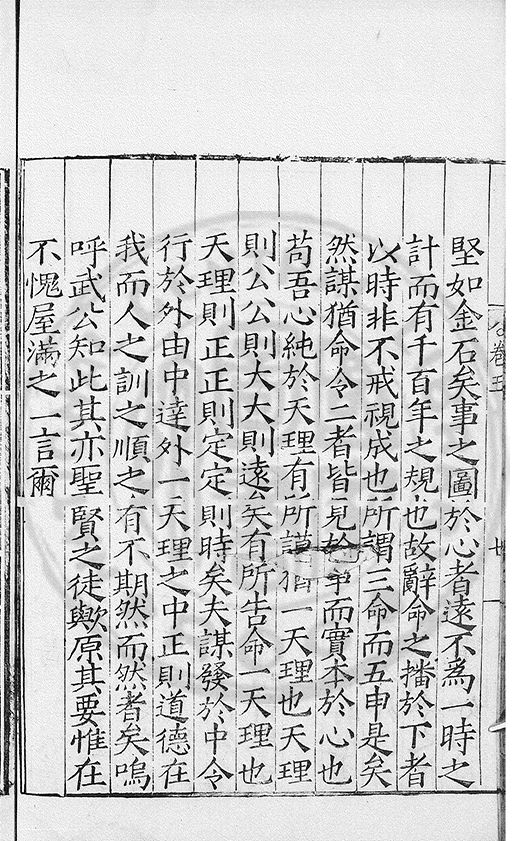 堅如金石矣事之圖於心者遠不爲一時之
計而有千百年之規也故辭命之播於下者
以時非不戒視成也所謂三命而五申是矣
然謀猶命令二者皆見於事而實本於心也
苟吾心純於天理有所謨猶一天理也天理
則公公則大大則遠矣有所告命一天理也
天理則正正則定定則時矣夫謀發於中令
行於外由中達外一天理之中正則道德在
我而人之訓之順之有不期然而然者矣嗚
呼武公知此其亦聖賢之徒歟原其要惟在
不愧屋滿之一言爾
卷五